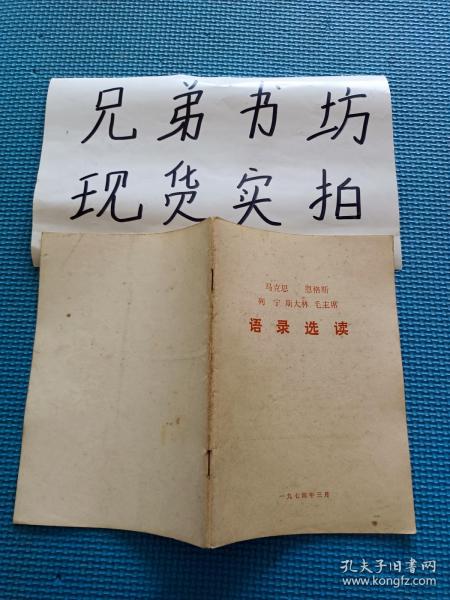 兄弟书坊
现货实拍
马克思 恩格斯
列宁 斯大林 毛主席
语录选读
一九七四年三月
孔夫子旧书网
www.kongfz.com